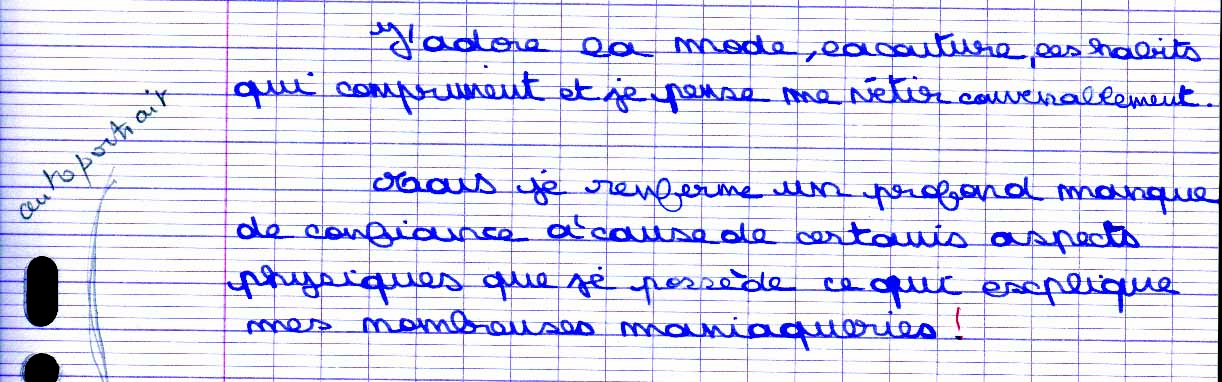 J'adore la mode, la couture, les habits
qui compriment et je pense me vêtir convenablement.
autoportrait
Mais je renferme un profond manque
de confiance à cause de certains aspects
physiques que je possède ce qui explique
mes nombreuses maniaqueries !